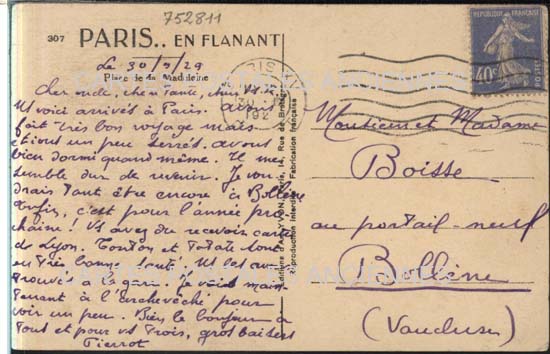 752811
307 PARIS.. EN FLANANT
Le 30/9/29
Place de la Madeleine
Cher oncle, chère Tante, chers
Ns voici arrivés à Paris. avons
fait très bon voyage mais
étions un peu serrés. avons
bien dormi quand même. Il me
semble dur de revenir. Je vou
drais tant être encore à Bollène
Enfin, c'est pour l'année pro
chaine! Vs avez du recevoir carte
de Lyon. Tonton et Tatate sont
en très bonne santé. Ns les avons
trouvés à la gare. Je vais main
tenant à l'archevêché pour
voir un peu. Bien le bonjour à
tous et pour vs trois, gros baisers
Pierrot
Rue de Bretagne
Reproduction Interdite Fabrication française
PARIS
RÉPUBLIQUE FRANÇAISE
40c
Monsieur et Madame
Boisse
au portail-neuf
Bollène
(Vaucluse)